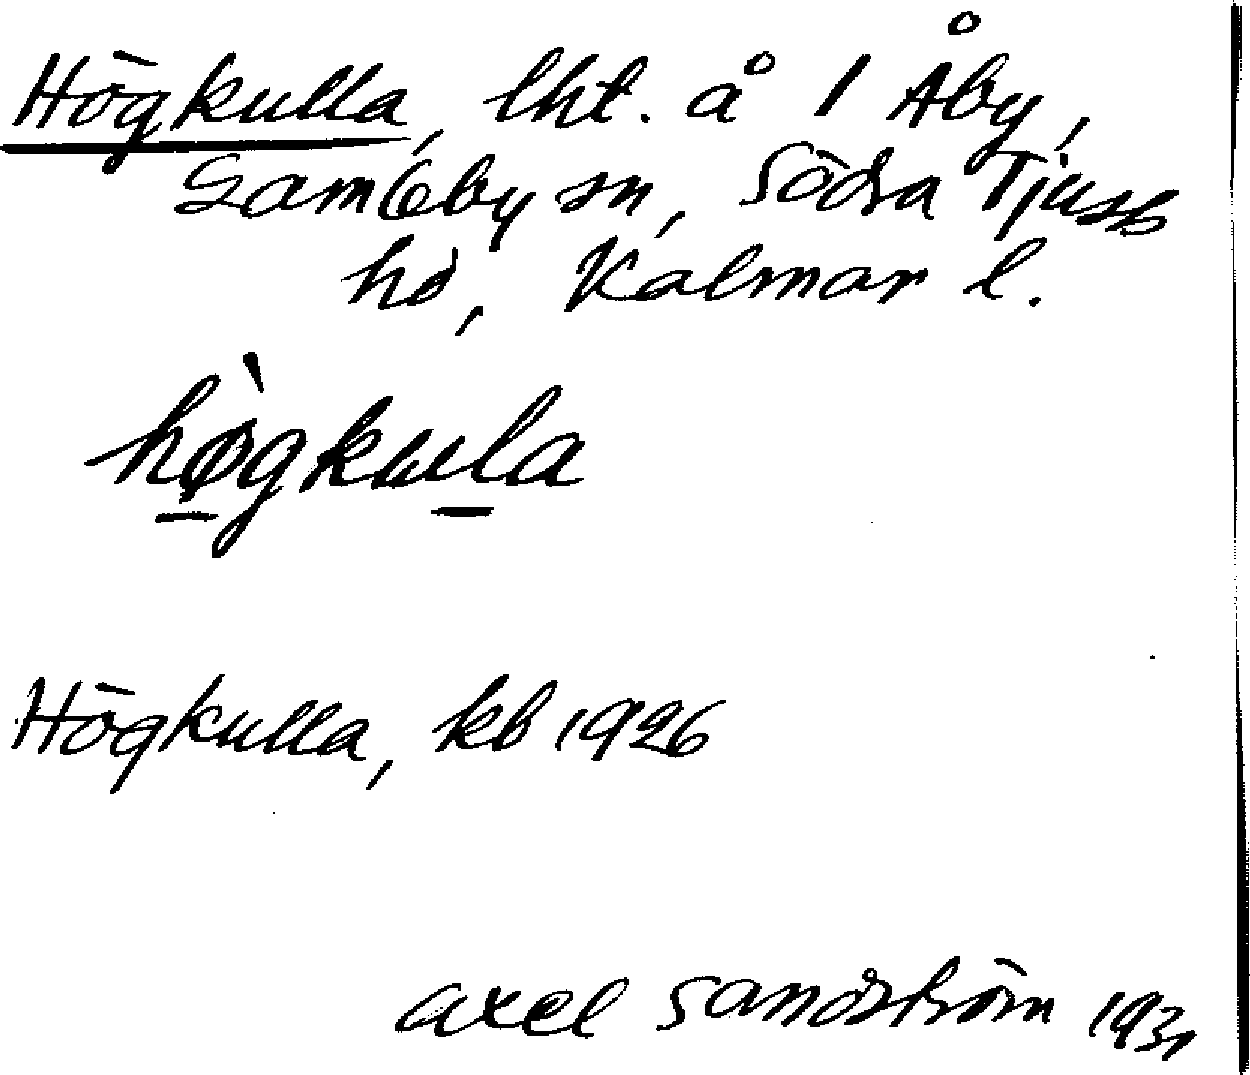 Högkulla, lht. å 1 Åby,
Gamleby sn, Södra Tjusts
hd, Kalmar l.
hø̀gkula
Högkulla, kb 1926
Axel Sandström 1931